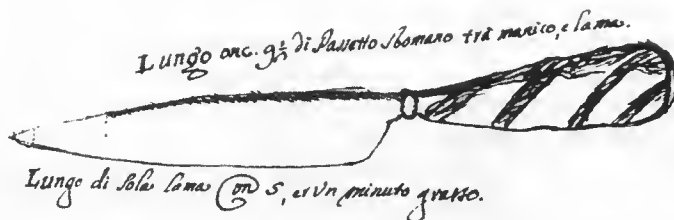 Lungo onc. 9½ di Passetto Romano trà manico, e lama.
Lungo di sola lama on 5, et Vn minuto grasso.